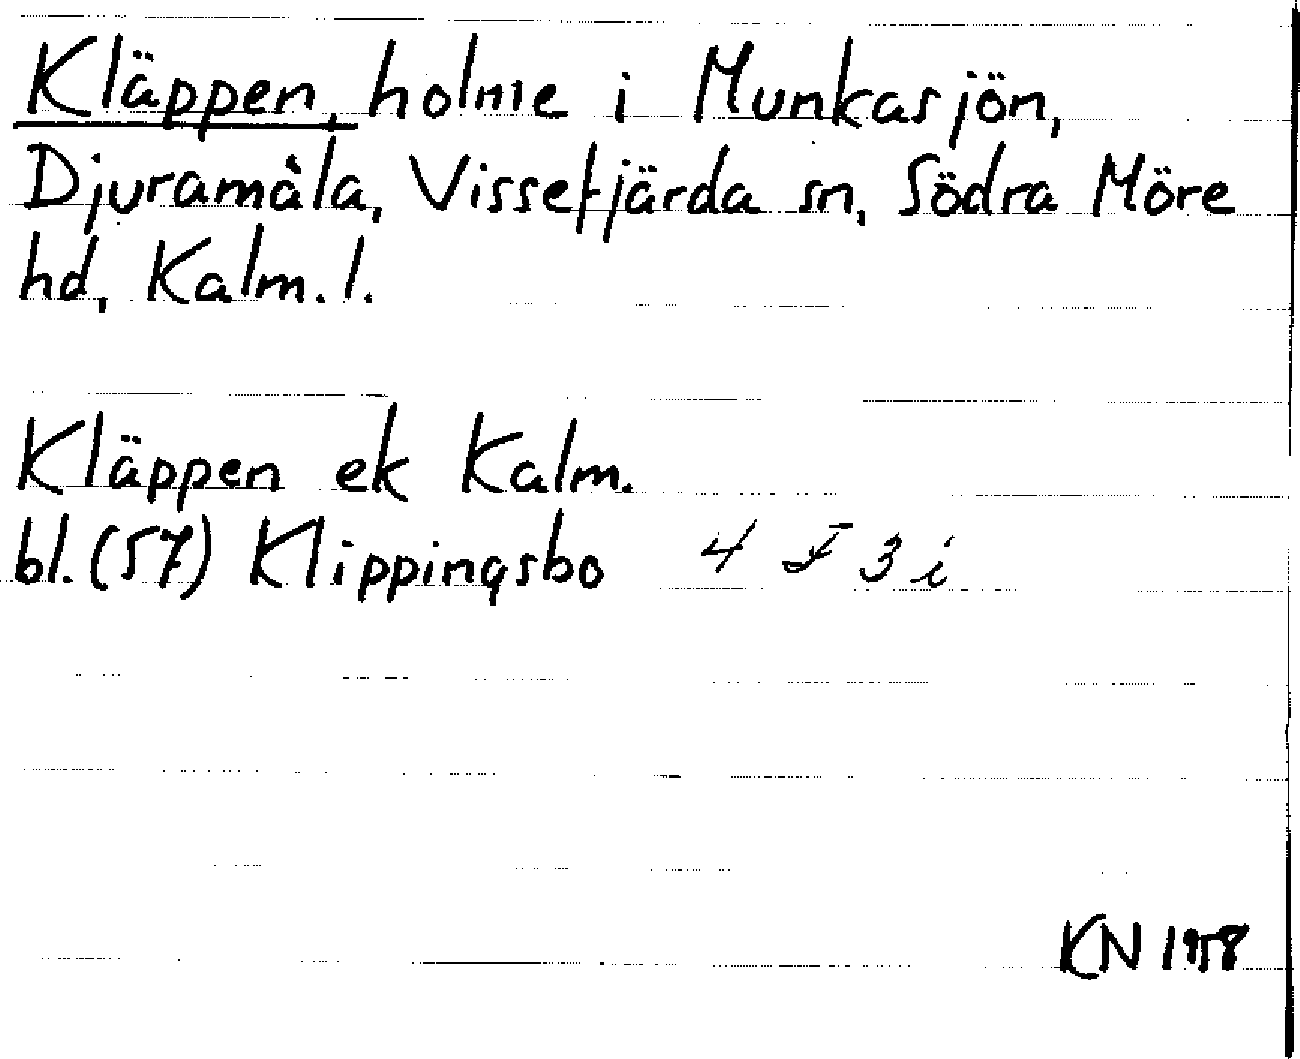 Kläppen, holme i Munkasjön,
Djuramåla, Vissefjärda sn, Södra Möre
hd, Kalm. l.
Kläppen ek Kalm.
bl. (57) Klippingsbo 4 F 3 i
KN 1958